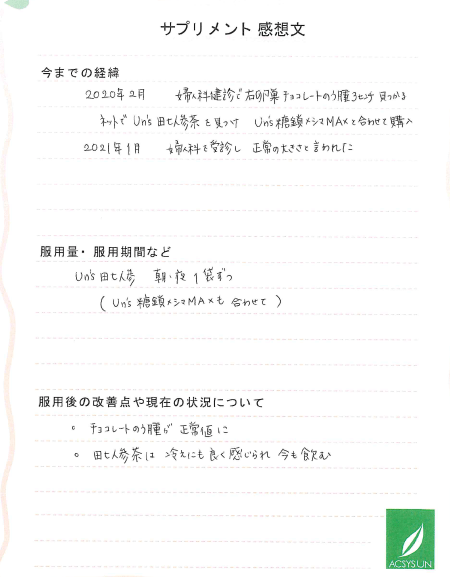 サプリメント 感想文
今までの経緯
2020年2月 婦人科健診で右卵巣チョコレートのう腫3センチ見つかる
ネットで Un's 田七人参茶を見つけ Un's糖鎖メシマMAXと合わせて購入
2021年1月 婦人科を受診し 正常の大きさと言われた
服用量・服用期間など
Un's 田七人参 朝・夜 1袋ずつ
( Un's 糖鎖メシマMAXも 合わせて )
服用後の改善点や現在の状況について
。 チョコレートのう腫が 正常値に
。 田七人参茶は 冷えにも良く感じられ 今も飲む
ACSYSUN